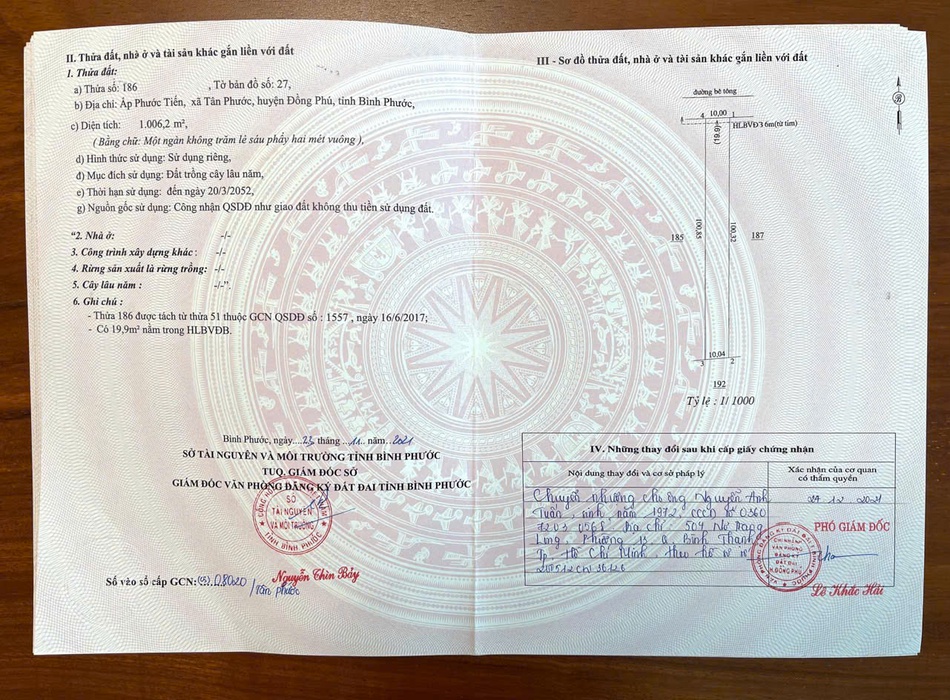 II. Thửa đất, nhà ở và tài sản khác gắn liền với đất
1. Thửa đất:
a) Thửa số: 186 , Tờ bản đồ số: 27,
b) Địa chỉ: Ấp Phước Tiến, xã Tân Phước, huyện Đồng Phú, tỉnh Bình Phước,
c) Diện tích: 1.006,2 m²,
( Bằng chữ: Một ngàn không trăm lẻ sáu phẩy hai mét vuông ),
d) Hình thức sử dụng: Sử dụng riêng,
đ) Mục đích sử dụng: Đất trồng cây lâu năm,
e) Thời hạn sử dụng: đến ngày 20/3/2052,
g) Nguồn gốc sử dụng: Công nhận QSDĐ như giao đất không thu tiền sử dụng đất.
"2. Nhà ở: -/-
3. Công trình xây dựng khác: -/-
4. Rừng sản xuất là rừng trồng: -/-
5. Cây lâu năm : -/-".
6. Ghi chú :
- Thửa 186 được tách từ thửa 51 thuộc GCN QSDĐ số : 1557 , ngày 16/6/2017;
- Có 19,9m² nằm trong HLBVĐB.
Bình Phước, ngày....23 tháng ...11. năm..2021
SỞ TÀI NGUYÊN VÀ MÔI TRƯỜNG TỈNH BÌNH PHƯỚC
TUQ. GIÁM ĐỐC SỞ
GIÁM ĐỐC VĂN PHÒNG ĐĂNG KÝ ĐẤT ĐAI TỈNH BÌNH PHƯỚC
SỞ
TÀI NGUYÊN
VÀ MÔI TRƯỜNG
TỈNH BÌNH PHƯỚC
Nguyễn Thìn Bảy
Số vào sổ cấp GCN:(CS)...08020
/Tân phước
III - Sơ đồ thửa đất, nhà ở và tài sản khác gắn liền với đất
B
đường bê tông
4 10,00 1
HLBVĐ3 6m(từ tim)
(19,9)
185
100,83
100,32
187
10,04
3 2
192
Tỷ lệ : 1/ 1000
IV. Những thay đổi sau khi cấp giấy chứng nhận
Nội dung thay đổi và cơ sở pháp lý
Xác nhận của cơ quan
có thẩm quyền
Chuyển nhượng cho ông Nguyễn Anh
Tuấn, sinh năm 1972, CCCD số 0360
7203 0268 Địa chỉ 509 Nơ Trang
Long, Phường 13 Q. Bình Thạnh
Tp Hồ Chí Minh, theo hồ sơ số
24 12 2021
PHÓ GIÁM ĐỐC
CHI NHÁNH
VĂN PHÒNG
ĐĂNG KÝ
ĐẤT ĐAI
H.ĐỒNG PHÚ
Lê Khắc Hải